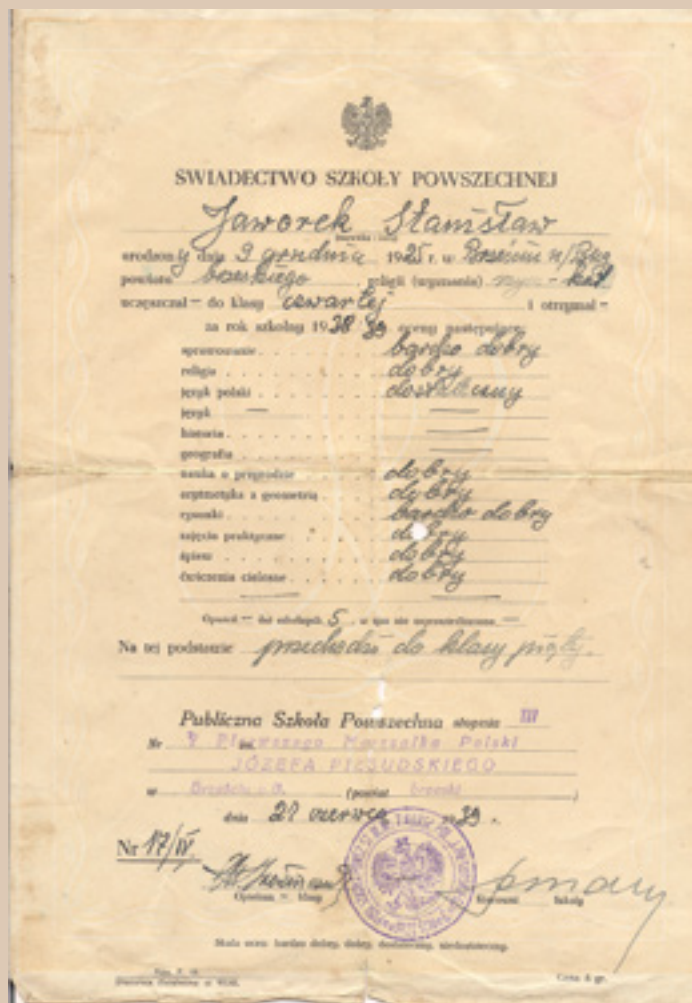 ŚWIADECTWO SZKOŁY POWSZECHNEJ
Jaworek Stanisław
urodzony dnia 9 grudnia 1925 r. w Brześciu n/Bug
powiatu brzeskiego religii (wyznania) rzym-kat
uczęszczał — do klasy czwartej i otrzymał —
za rok szkolny 1938/39 oceny następujące:
sprawowanie bardzo dobry
religia dobry
język polski dostateczny
język — —
historia —
geografia —
nauka o przyrodzie dobry
arytmetyka z geometrią dobry
rysunki bardzo dobry
zajęcia praktyczne dobry
śpiew dobry
ćwiczenia cielesne dobry
— —
Opuścił — dni szkolnych 5, w tym nie usprawiedliwiono —
Na tej podstawie przechodzi do klasy piątej.
Publiczna Szkoła Powszechna stopnia III
Nr im. Pierwszego Marszałka Polski
JÓZEFA PIŁSUDSKIEGO
w Brześciu (powiat brzeski)
dnia 21 czerwca 1939 r.
Nr 17/IV.
Opiekun — klasy Kierownik Szkoły
Skala ocen: bardzo dobry, dobry, dostateczny, niedostateczny.
Cena 6 gr.